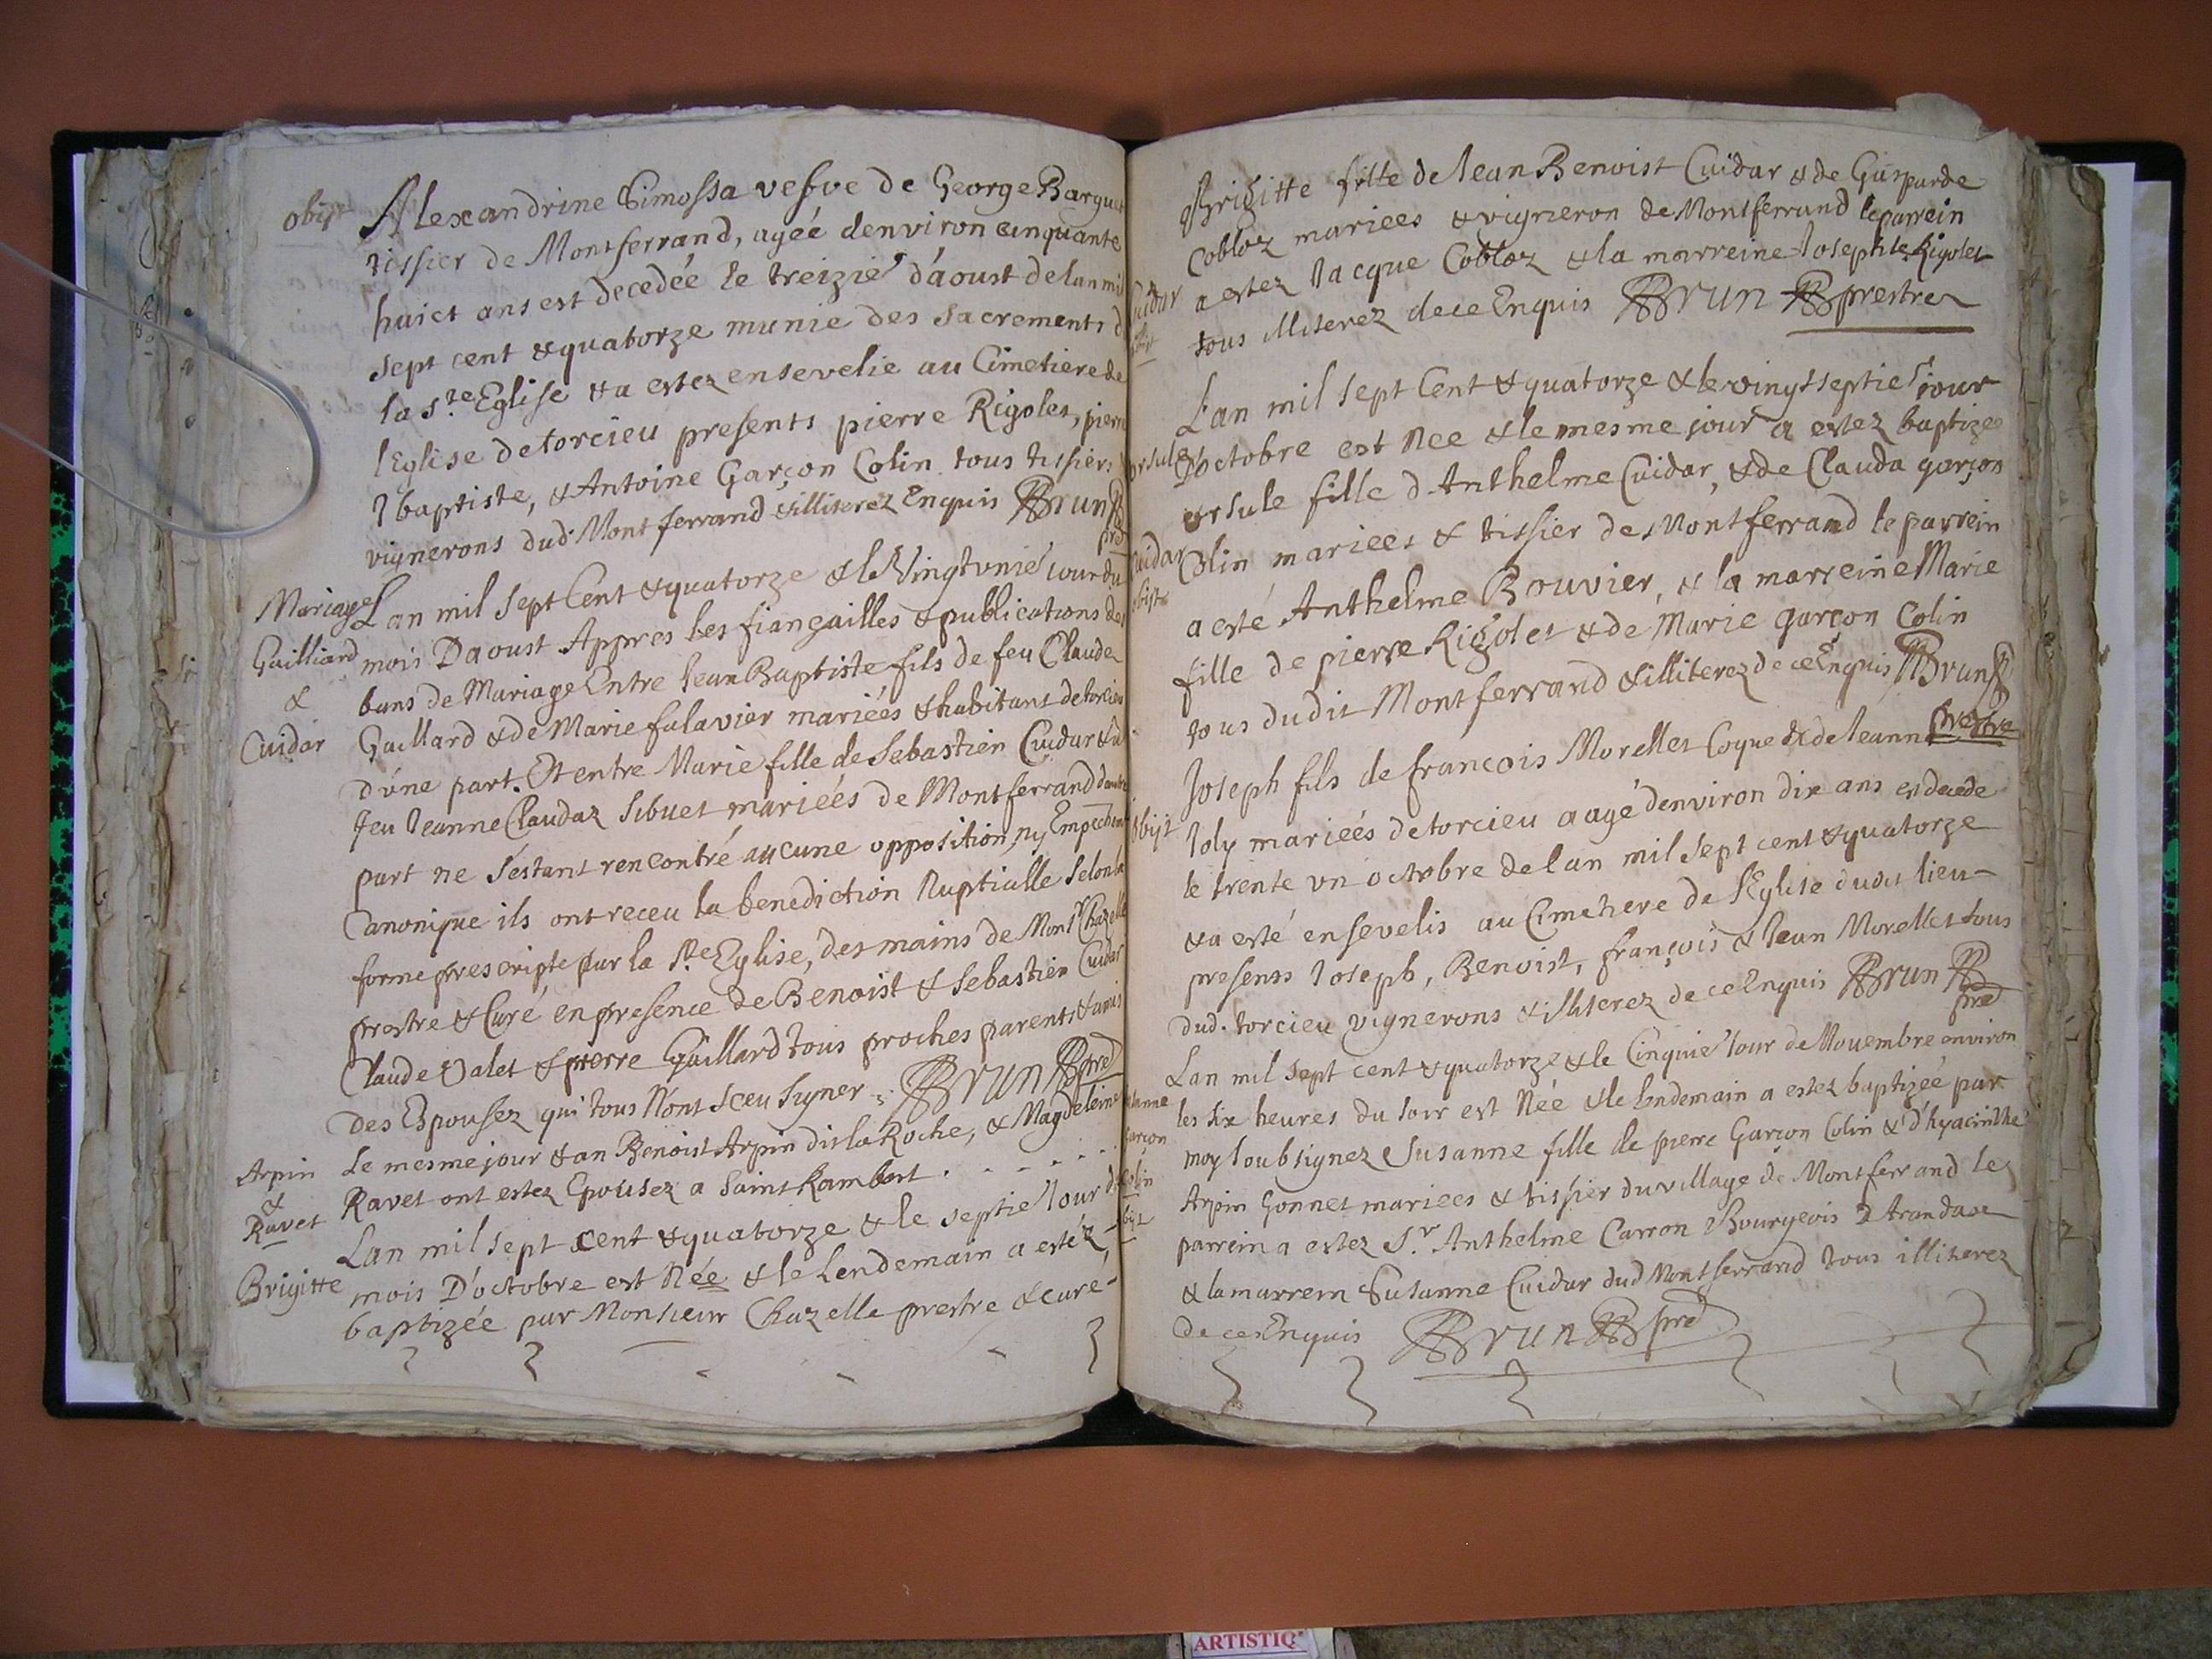 obijt Alexandrine Simossa vefve de George Barquet
tissier de Montferrand, agéé denviron cinquante
huict ans est decedéé le treizié d'áoust de lan mil
sept cent & quatorze munie des Sacrements d
la Ste Eglise & a estez ensevelie au Cimetiere de
l'Eglise de torcieu presents pierre Rigolet, pierre
J baptiste, & Antoine Garçon Colin tous tissiers
vignerons dud Montferrand & illiterez Enquis Brun
pre
Mariage Lan mil sept Cent & quatorze & le Vingtunié iour du
Gailliard mois Daoust Appres les fiançailles & publications des
& bans de Mariage Entre Jean Baptiste fils de feu Claude
Cuidar Gaillard & de Marie falavier mariéés & habitant de torcieu
d'úne part. Et entre Marie fille de Sebastien Cuidar & d
feu Jeanne Claudaz Sibuet mariéés de Montferrand dautre
part ne s'éstant rencontré aucune opposition, ny Empechem
Canonique ils ont receu la benediction Nuptialle Selon la
forme prescripte par la Ste Eglise, des mains de Monsr Chazelle
prestre & Curé en presence de Benoist & Sebastien Cuidar
Claude Valet & pierre Gaillard tous proches parents & amis
des Espousez qui tous Nont Sceu Signer. Brun pre
Arpin Le mesme jour & an Benoist Arpin dit la Roche, & Magdeleine
& Ravet ont estez Epousez a Saint Rambert
Ravet Lan mil sept cent & quatorze & le septié Jour d
Brigitte mois D'octobre est Néé & le Lendemain a estéz
baptizéé par Monsieur Chazelle prestre & curé
Brigitte fille de Jean Benoist Cuidar & de Gasparde
Cobloz mariees & vigneron de Montferrand le parrein
Cuidar a estez Jacque Cobloz & la marreine Josephte Rigolet
tous Illiterez de ce Enquis Brun prestre
Lan mil sept Cent & quatorze & le vingt septié jour
ursule D'octobre est Nee & le mesme jour a estez baptizee
ursule fille d'Anthelme Cuidar, & de Clauda garçon
Cuidar Colin mariees & tissier de Montferrand le parrein
obijt a esté Anthelme Bouvier, & la marreine Marie
fille de pierre Rigolet & de Marie garçon Colin
tous dudit Montferrand & illiterez de ce Enquis Brun
prestre
Joseph fils de francois Morellet Coque & de Jeanne
obijt Joly mariéés de torcieu aagé denviron dix ans est decede
le trente vn octobre de lan mil sept cent & quatorze
& a esté ensevelis au Cimetiere de l'Eglise dudit lieu
presents Joseph, Benoist, françois & Jean Morellet tous
dud. torcieu vignerons & illiterez de ce Enquis Brun
pre
Lan mil sept cent & quatorze & le Cinquié Jour de Novembre environ
les six heures du soir est Néé & le lendemain a estez baptizéé par
garçon moy soubsignez Susanne fille de pierre Garçon Colin & d'hyacinthe
Colin Arpin Gonnet mariees & tissier du village de Montferrand le
obijt parrein a estez Sr. Anthelme Carron Bourgeois d Arandas
& la marrein Susanne Cuidar dud Montferrand tous illiterez
de ce Enquis Brun pre
ARTISTIQ